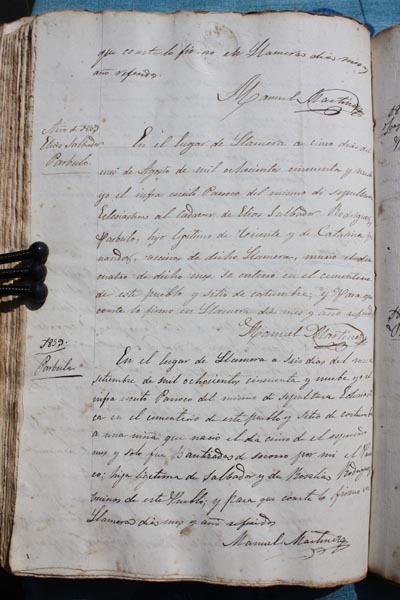 que conste lo firmo en Llamera dia mes y
año referido.
Manuel Martinez
Año de 1859
Elias Salbador
Parbulo.
En el lugar de Llamera a cinco dias del
mes de Agosto de mil ochocientos cincuenta y nuebe
yo el infra escrito Parroco del mismo di sepultura
Eclesiastica al cadaver de Elias Salbador Rodriguez
Parbulo, hijo legitimo de Vicente y de Catalina
vecinos de dicho Llamera, murio el dia
cuatro de dicho mes, se enterro en el cementerio
de este pueblo y sitio de costumbre; y para que
conste lo firmo en Llamera dia mes y año referido
Manuel Martinez
1859
Parbula
En el lugar de Llamera a seis dias del mes
setiembre de mil ochocientos cincuenta y nuebe yo el
infra escrito Parroco del mismo di sepultura
ca en el cementerio de este pueblo y sitio de costumbre
a una niña que nacio el dia cinco de el
mes y solo fue Bautizada de socorro por mi el
co; hija legitima de Salbador y de Rosalia Rodriguez
vecinos de este Pueblo; y para que conste lo firmo en
Llamera dia mes y año referido
Manuel Martinez